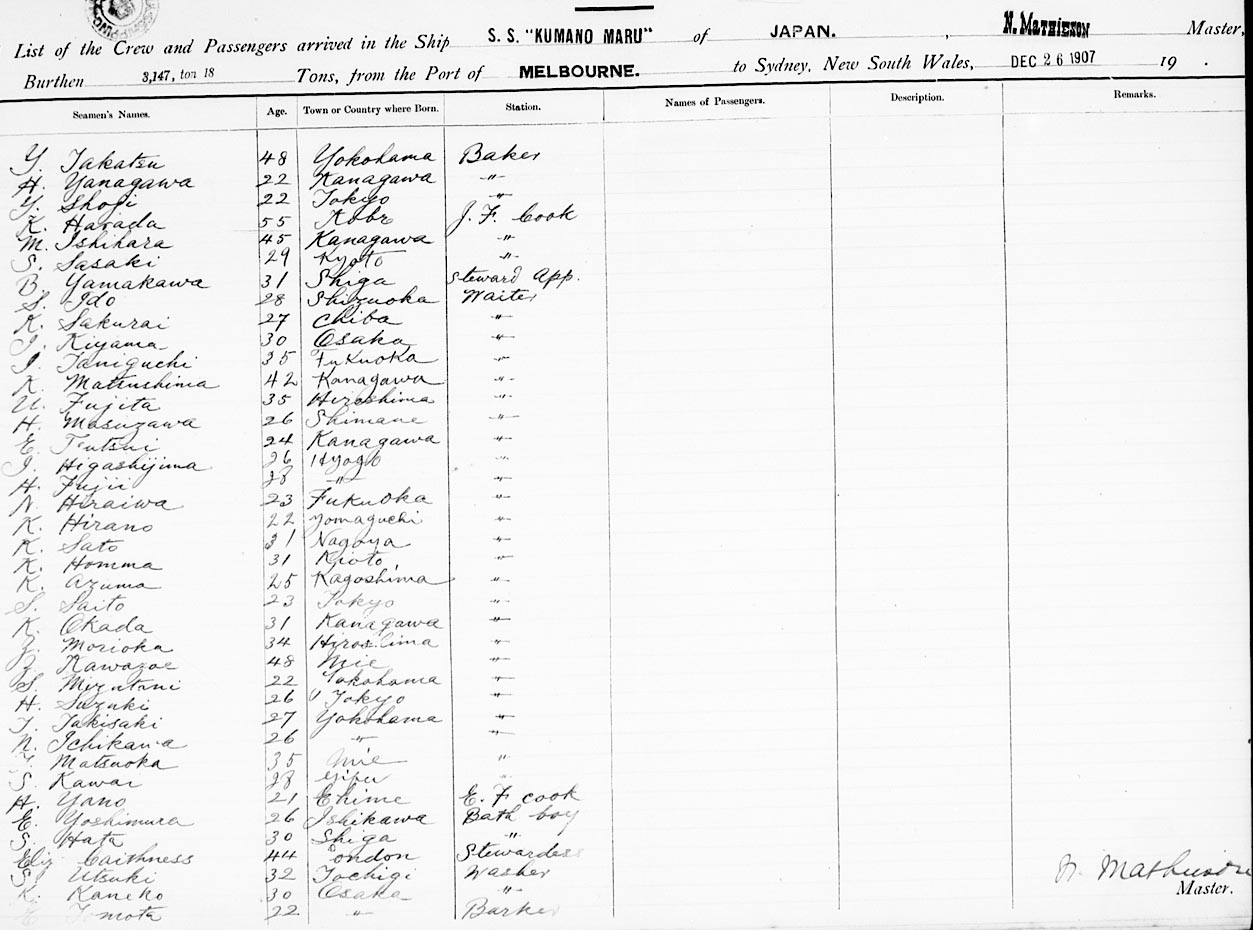 List of the Crew and Passengers arrived in the Ship S. S. "KUMANO MARU" of JAPAN. , N. MATHIESON Master,
Burthen 3,147, ton 18 Tons, from the Port of MELBOURNE. to Sydney, New South Wales, DEC 26 1907 19 .
Seamen's Names. Age. Town or Country where Born. Station. Names of Passengers. Description. Remarks.
Y. Takatsu 48 Yokohama Baker
H. Yanagawa 22 Kanagawa "
Y. Shogi 22 Tokyo "
K. Harada 55 Kobe J. F. Cook
M. Ishihara 45 Kanagawa "
S. Sasaki 29 Kyoto "
B. Yamakawa 31 Shiga Steward App.
S. Ido 28 Shizuoka Waiter
K. Sakurai 27 Chiba "
J. Kiyama 30 Osaka "
J. Taniguchi 35 Fukuoka "
K. Matsushima 42 Kanagawa "
U. Fujita 35 Hiroshima "
H. Masuzawa 26 Shimane "
E. Tsutsui 24 Kanagawa "
J. Higashijima 26 Hyogo "
H. Fujii 28 " "
N. Hiraiwa 23 Fukuoka "
K. Hirano 22 Yomaguchi "
K. Sato 31 Nagoya "
K. Homma 31 Kioto "
K. Azuma 25 Kagoshima "
S. Saito 23 Tokyo "
K. Okada 31 Kanagawa "
Z. Morioka 34 Hiroshima "
Z. Kawazoe 48 Mie "
S. Mizutani 22 Yokohama "
H. Suzuki 26 Tokyo "
T. Takisaki 27 Yokohama "
N. Ichikawa 26 " "
Y. Matsuoka 35 Mie "
S. Kawai 28 Gifu "
H. Yano 21 Ehime E. F cook
E. Yoshimura 26 Ishikawa Bath boy
S. Hata 30 Shiga "
Eliz Caithness 44 London Stewardess
S. Utsuki 32 Tochigi Washer
K. Kaneko 30 Osaka "
Tomota 22 " Barber
N. Mathieson
Master.